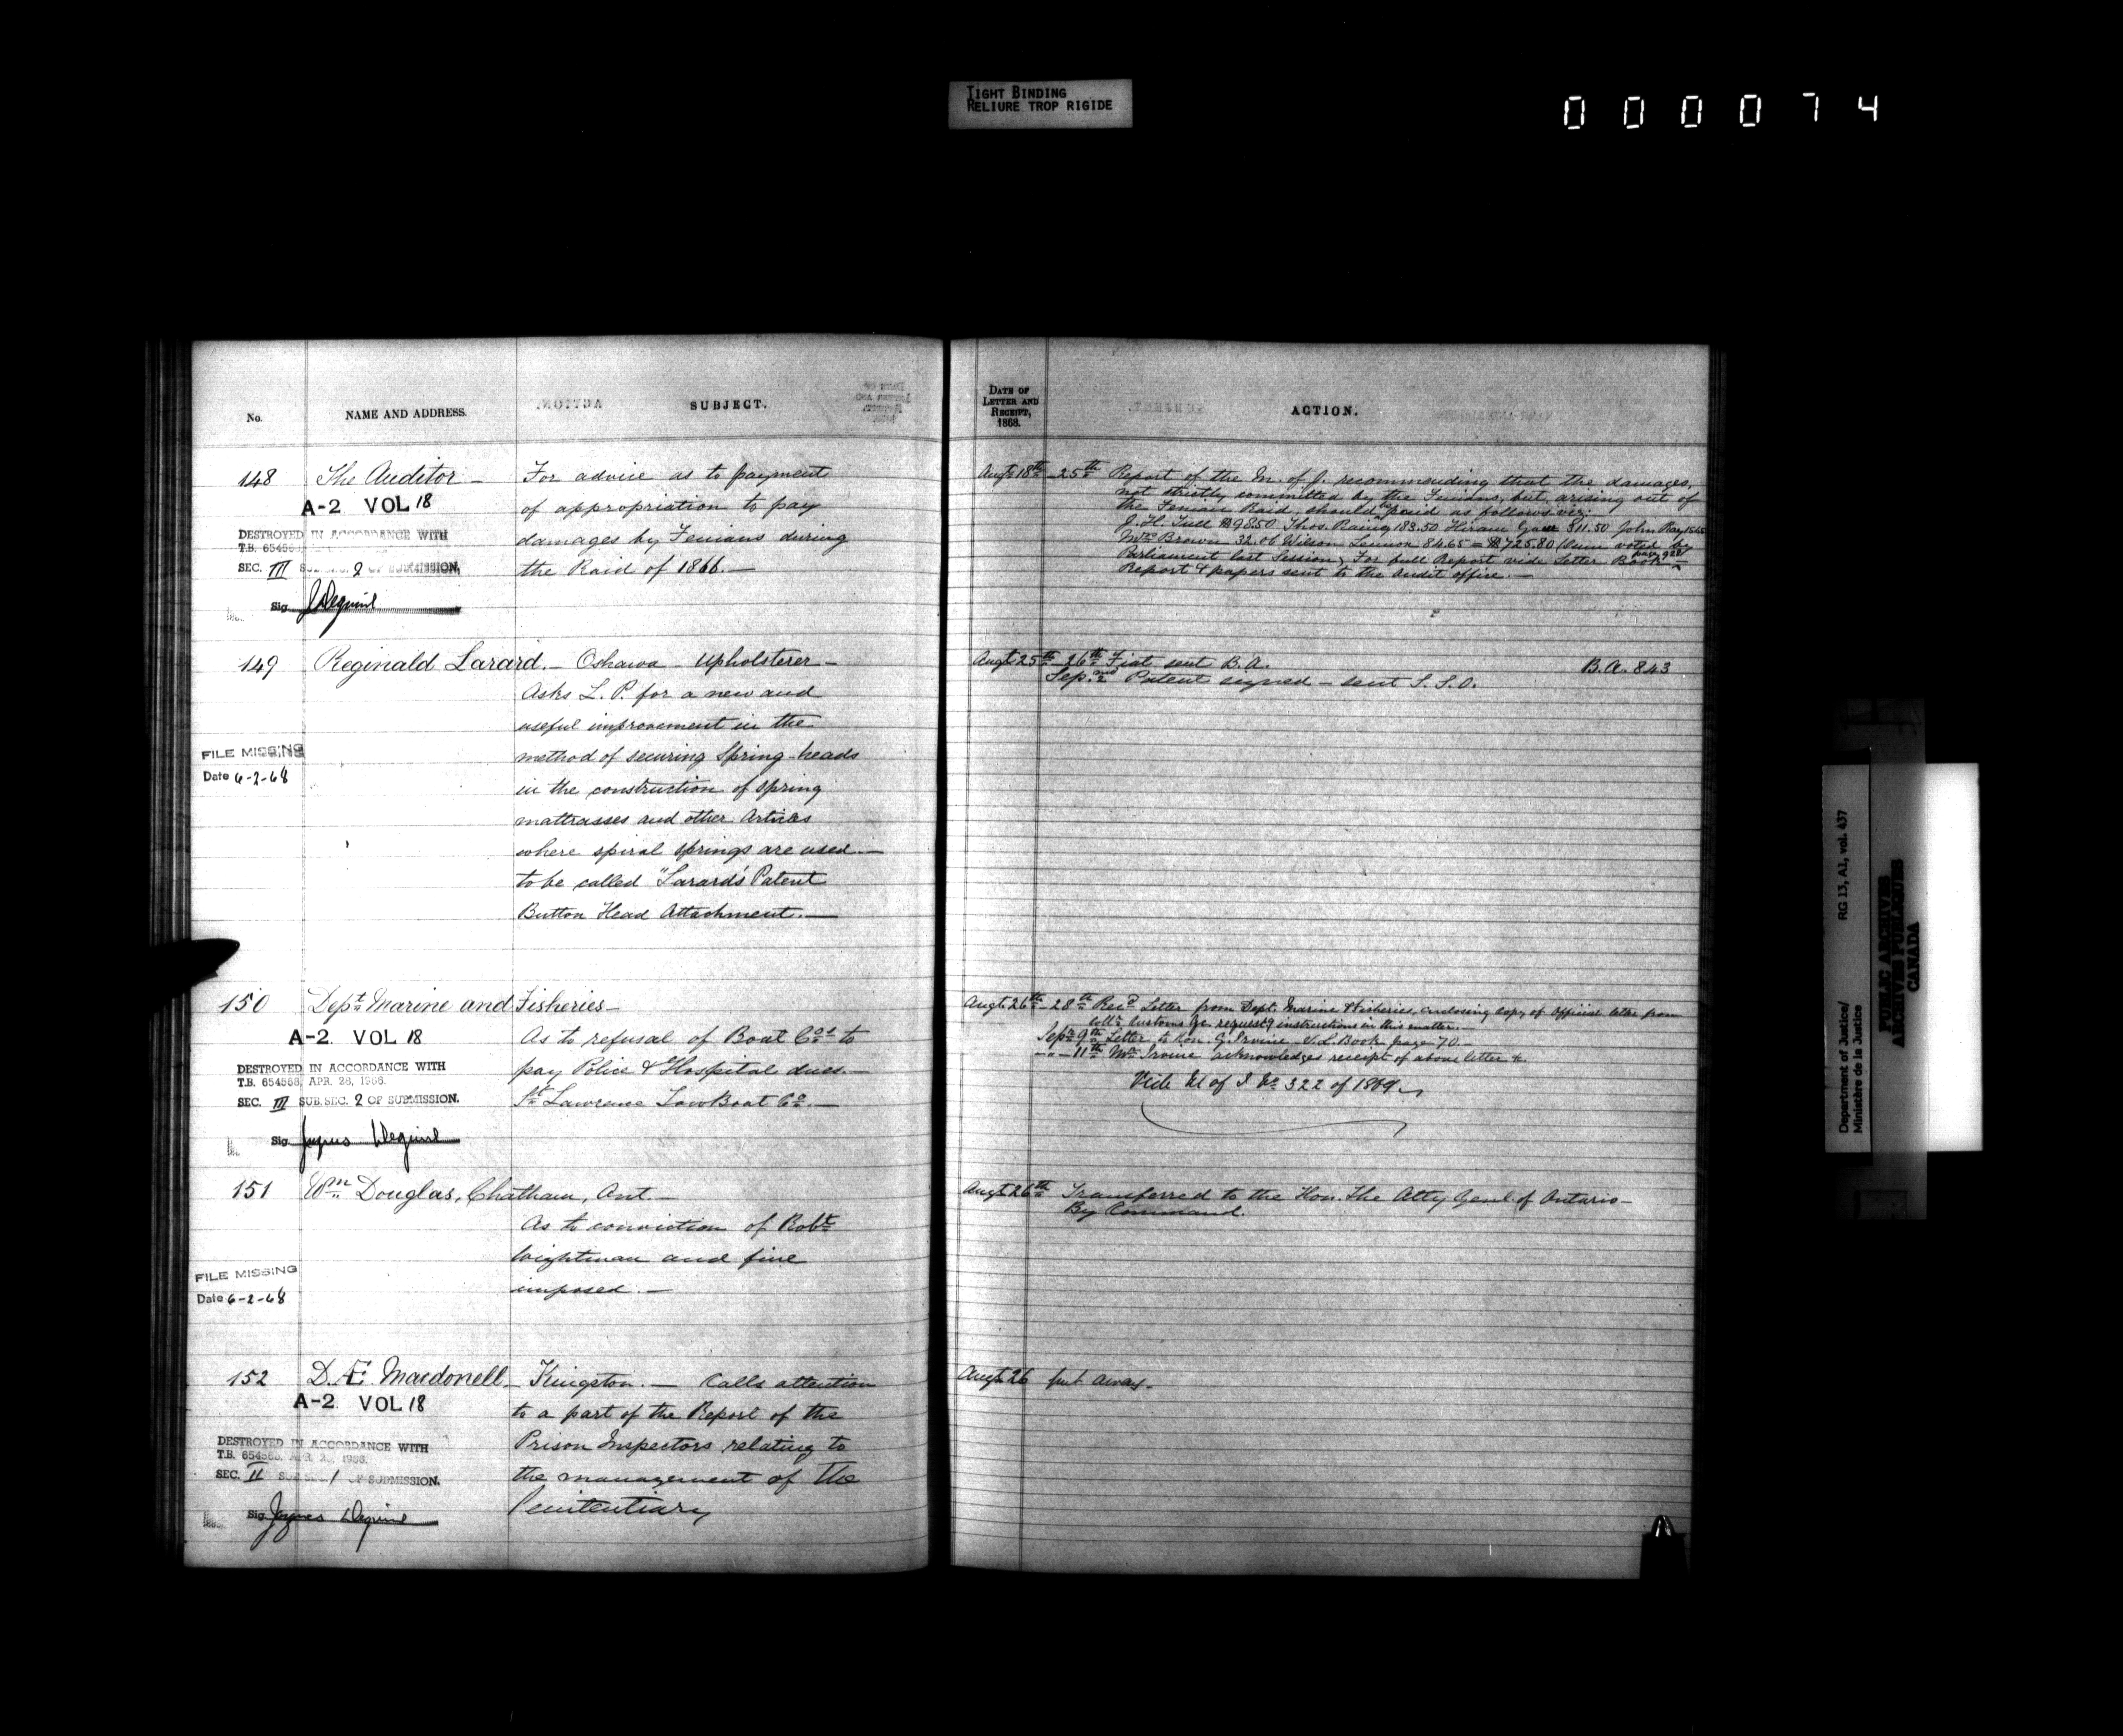 TIGHT BINDING
RELIURE TROP RIGIDE
000074
No.
NAME AND ADDRESS.
SUBJECT.
148 The Auditor —
A-2 VOL 18
DESTROYED IN ACCORDANCE WITH
T.B. 654568
SEC. III SUB. SEC. 2 OF SUBMISSION.
Sig
For advice as to payment
of appropriation to pay
damages by Fenians during
the Raid of 1866. —
149 Reginald Larard. — Oshawa — Upholsterer —
Asks L. P. for a new and
useful improvement in the
method of securing Spring-heads
in the construction of spring
mattrasses and other Articles
where spiral springs are used —
to be called "Larard's Patent
Button Head Attachment. —
FILE MISSING
Date 6-2-68
150 Dept. Marine and Fisheries —
A-2. VOL 18
DESTROYED IN ACCORDANCE WITH
T.B. 654568, APR. 28, 1966.
SEC. III SUB. SEC. 2 OF SUBMISSION.
Sig
As to refusal of Boat Cos. to
pay Police & Hospital dues. —
St. Lawrence Tow Boat Co. —
151 Wm. Douglas, Chatham, Ont. —
As to conviction of Robt.
Wightman and fine
imposed. —
FILE MISSING
Date 6-2-68
152 D. Æ. Macdonell — Kingston. — Calls attention
to a part of the Report of the
Prison Inspectors relating to
the management of the
Penitentiary
A-2. VOL 18
DESTROYED IN ACCORDANCE WITH
T.B. 654568, APR. 28, 1966.
SEC. II SUB. SEC. 1 OF SUBMISSION.
Sig
DATE OF
LETTER AND
RECEIPT,
1868.
ACTION.
Augt. 18th — 25th Report of the M. of J. recommending that the damages,
not strictly committed by the Fenians, but, arising out of
the Fenian Raid, should be paid as follows viz:
J. H. 98.50 Thos. 183.50 Hiram 311.50 John Ray 15.65
Mrs. Brown 32.00 Wilson Lemon 84.65 = $725.80 (Sum voted by
Parliament last Session) For full Report vide Letter Book page 928
Report & papers sent to the Audit office. —
Augt. 25th 26th Fiat sent B. A. B. A. 843
Sep. 2nd Patent signed — sent S. S. O.
Augt. 26th — 28th Recd. Letter from Dept. Marine & Fisheries, enclosing copy of Official letter from
Collr. Customs Qc. requestg instructions in this matter.
Sept. 9th Letter to Hon. G. Irvine — S. L. Book page 70. —
— " — 11th Mr. Irvine acknowledges receipt of above letter &c
Vide M of J No. 322 of 1869
Augt. 26th Transferred to the Hon. The Atty Genl. of Ontario —
By Command.
Augt. 26 put away.
Department of Justice/ RG 13, A1, vol. 437
Ministère de la Justice
PUBLIC ARCHIVES
ARCHIVES PUBLIQUES
CANADA